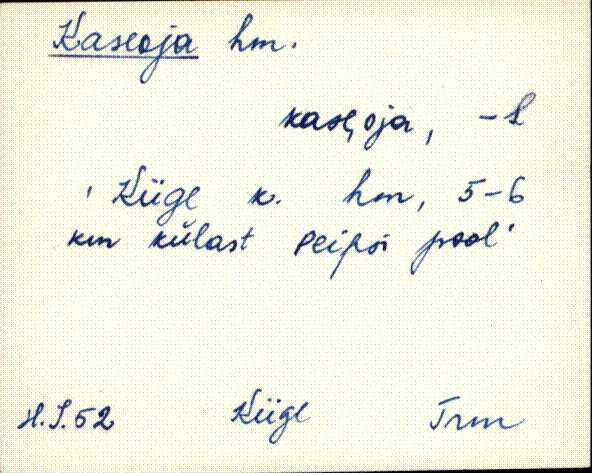 Kaseoja hm.
kase,oja, -l
' Kiige k. hm, 5-6
km külast Peipsi pool'
H.S.52 Kiige Trm